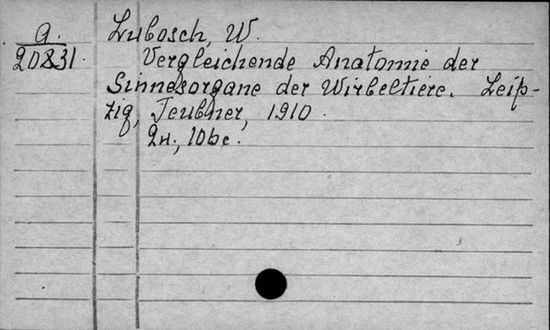 A.
20831.
Lubosch, W.
Vergleichende Anatomie der
Sinnesorgane der Wirbeltiere. Leip-
zig, Teubner, 1910.